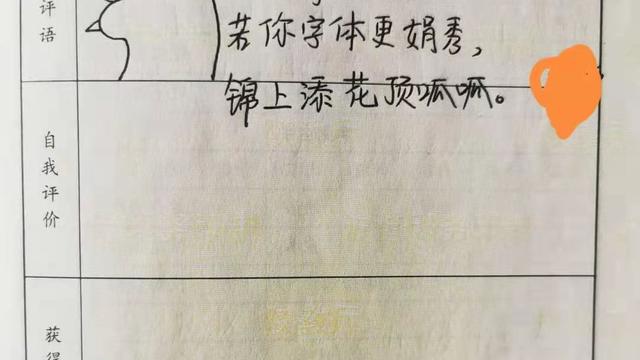 评语
若你字体更娟秀，
锦上添花顶呱呱。
自我评价
获得